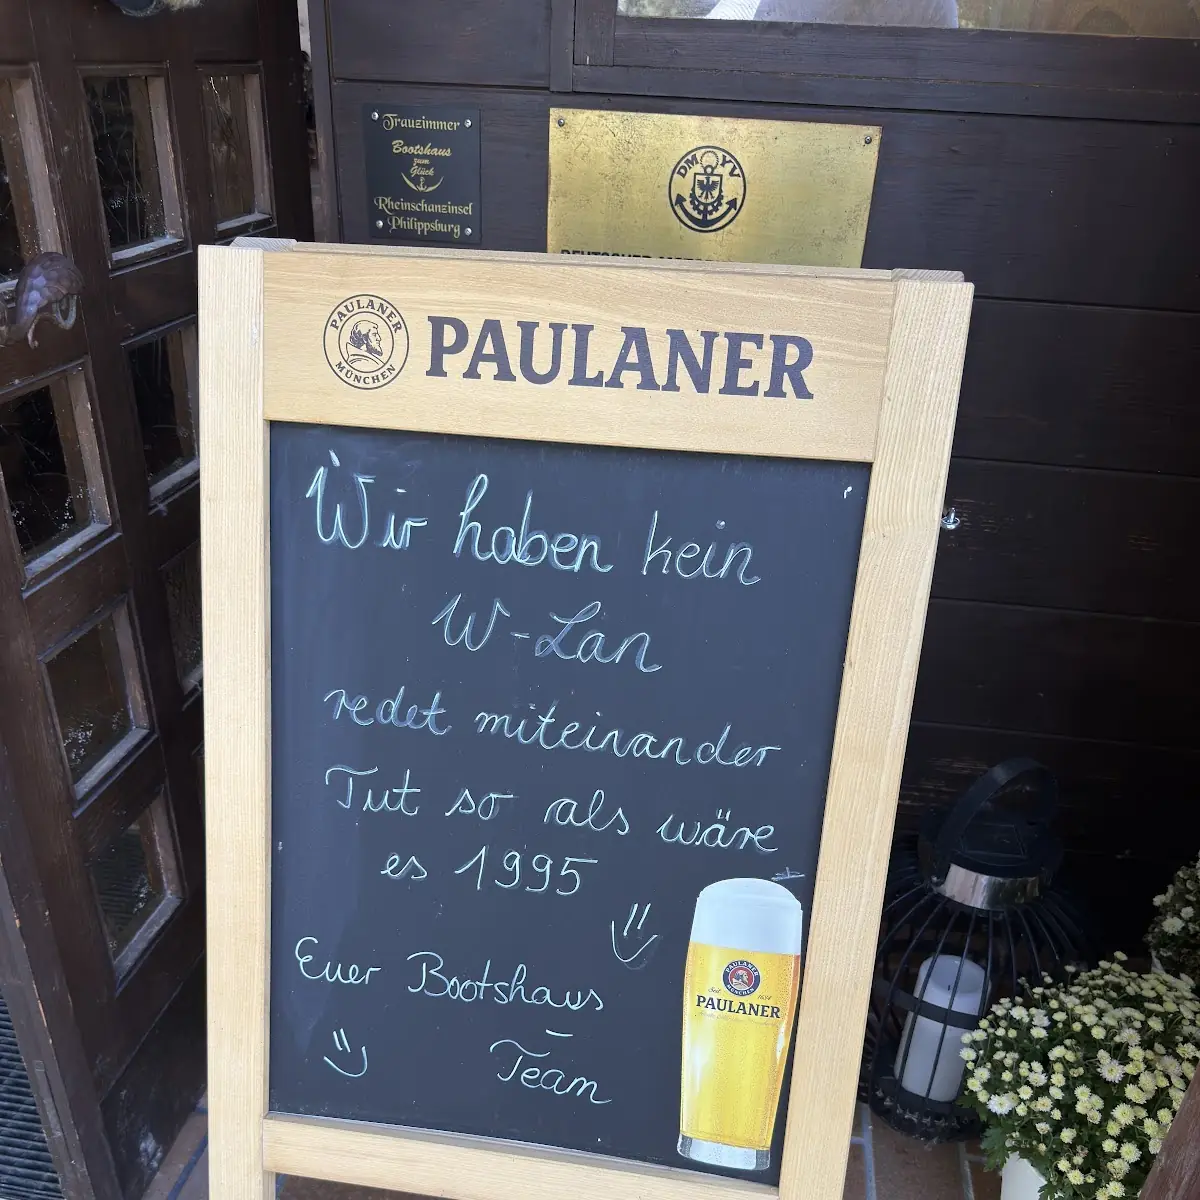 Trauzimmer
Bootshaus
zum
Glück
Rheinschanzinsel
Philippsburg
DMYV
PAULANER
MÜNCHEN
PAULANER
Wir haben kein
W-Lan
redet miteinander
Tut so als wäre
es 1995
Euer Bootshaus
-
Team
PAULANER
MÜNCHEN
Seit 1634
PAULANER